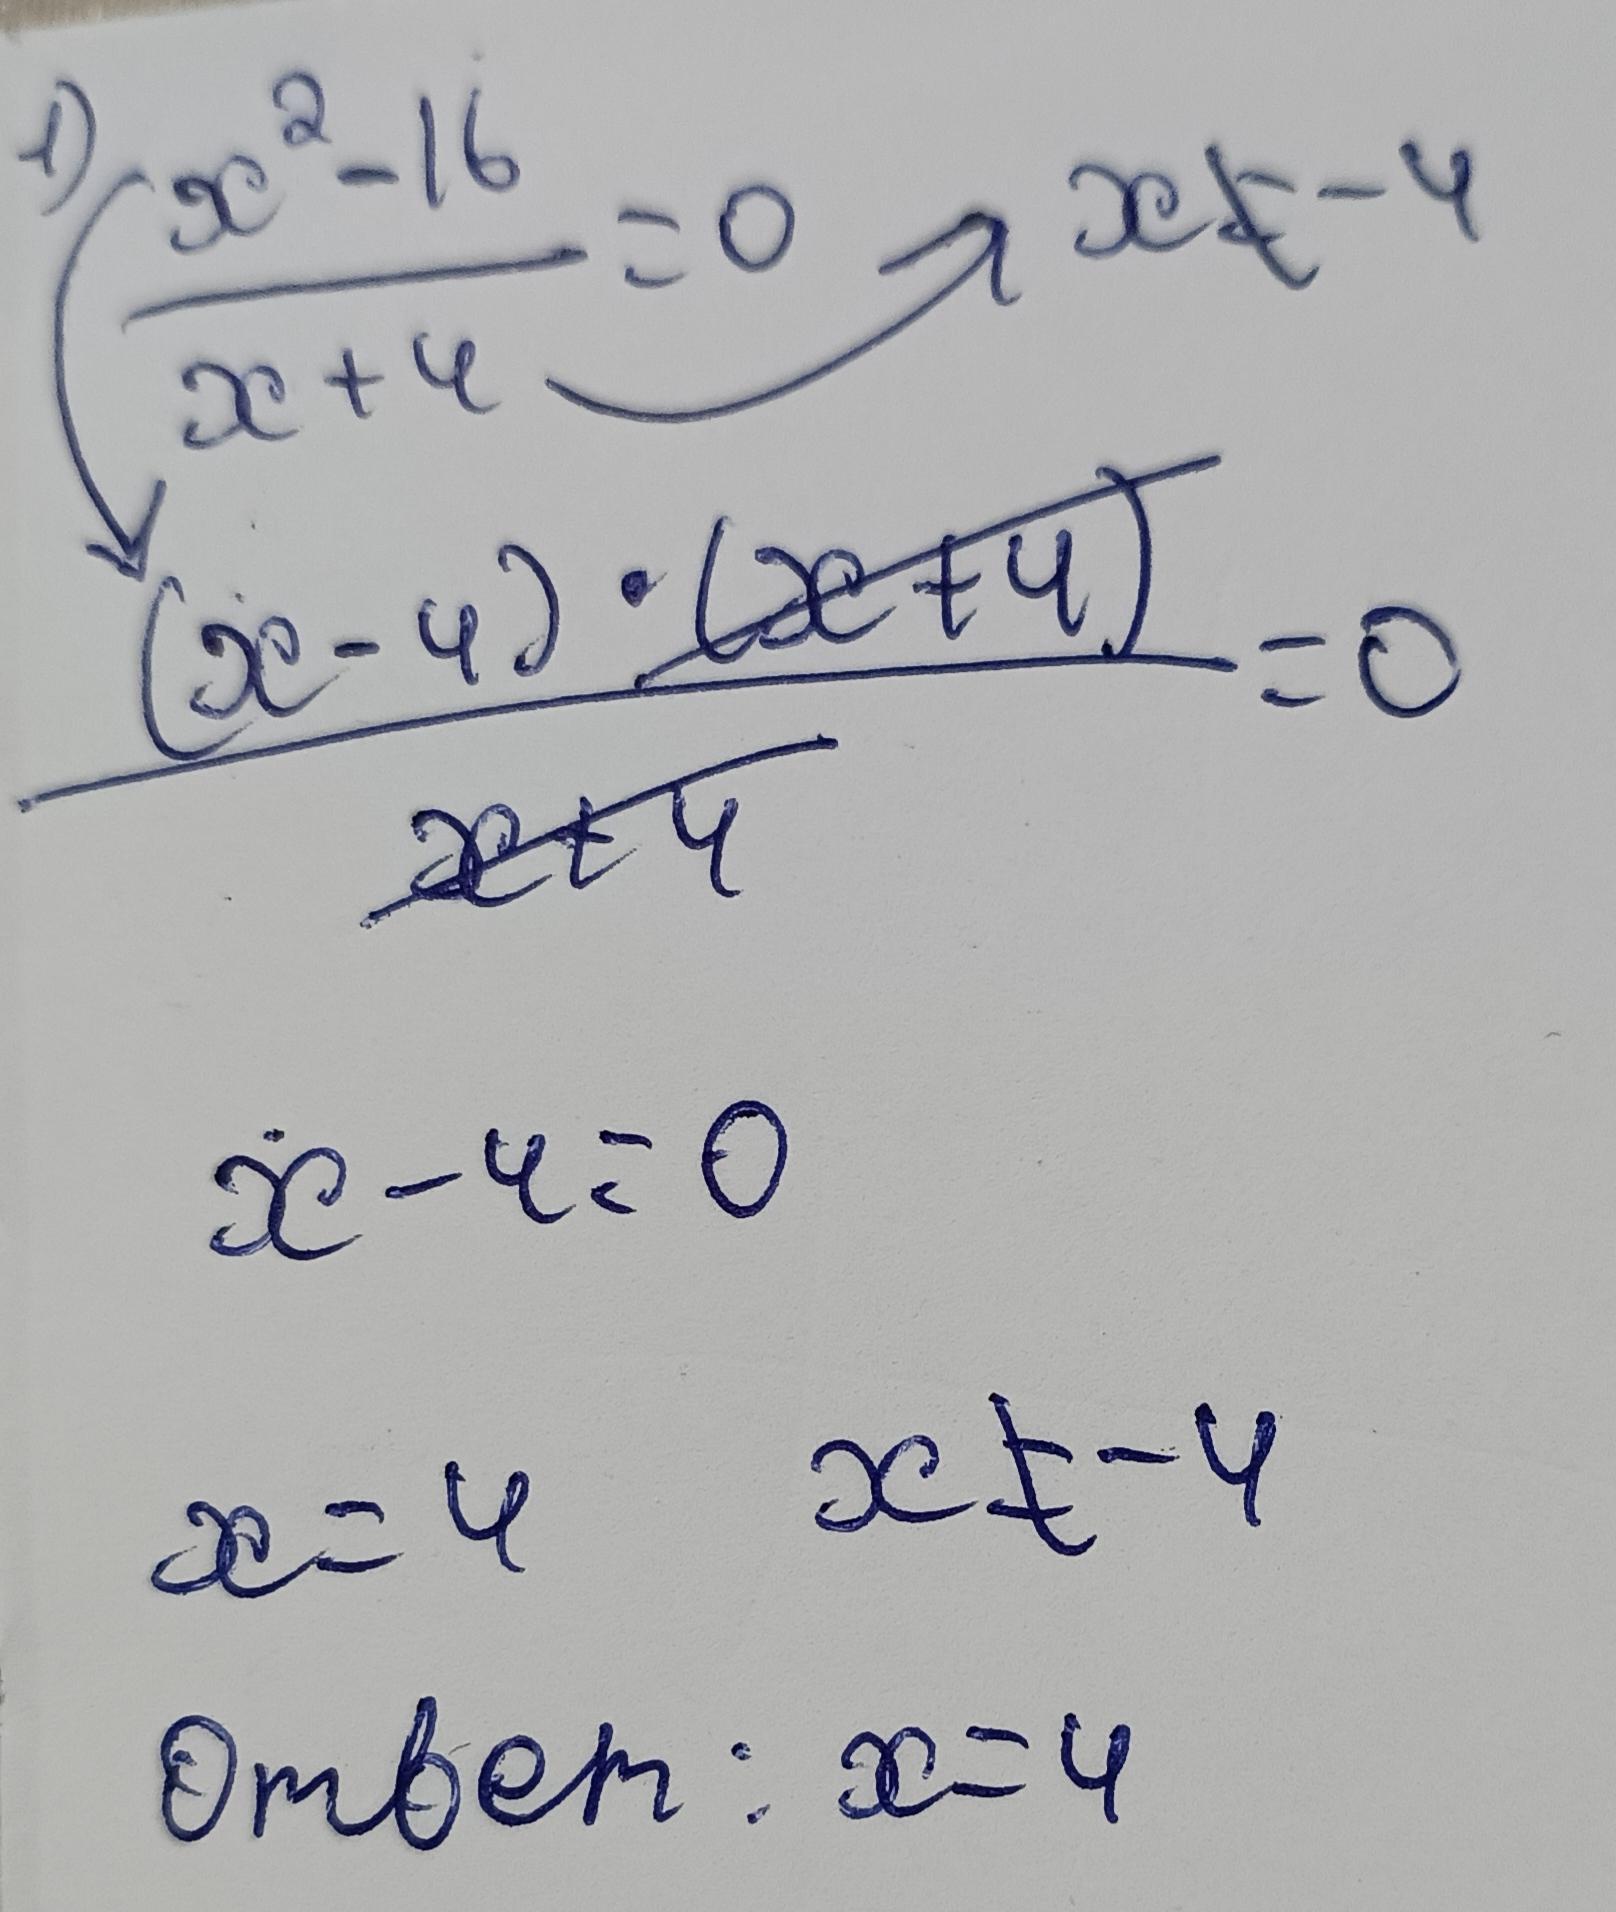 1) x² - 16 / x + 4 = 0 x ≠ -4
(x - 4) · (x + 4) / x + 4 = 0
x - 4 = 0
x = 4 x ≠ -4
Ответ: x = 4